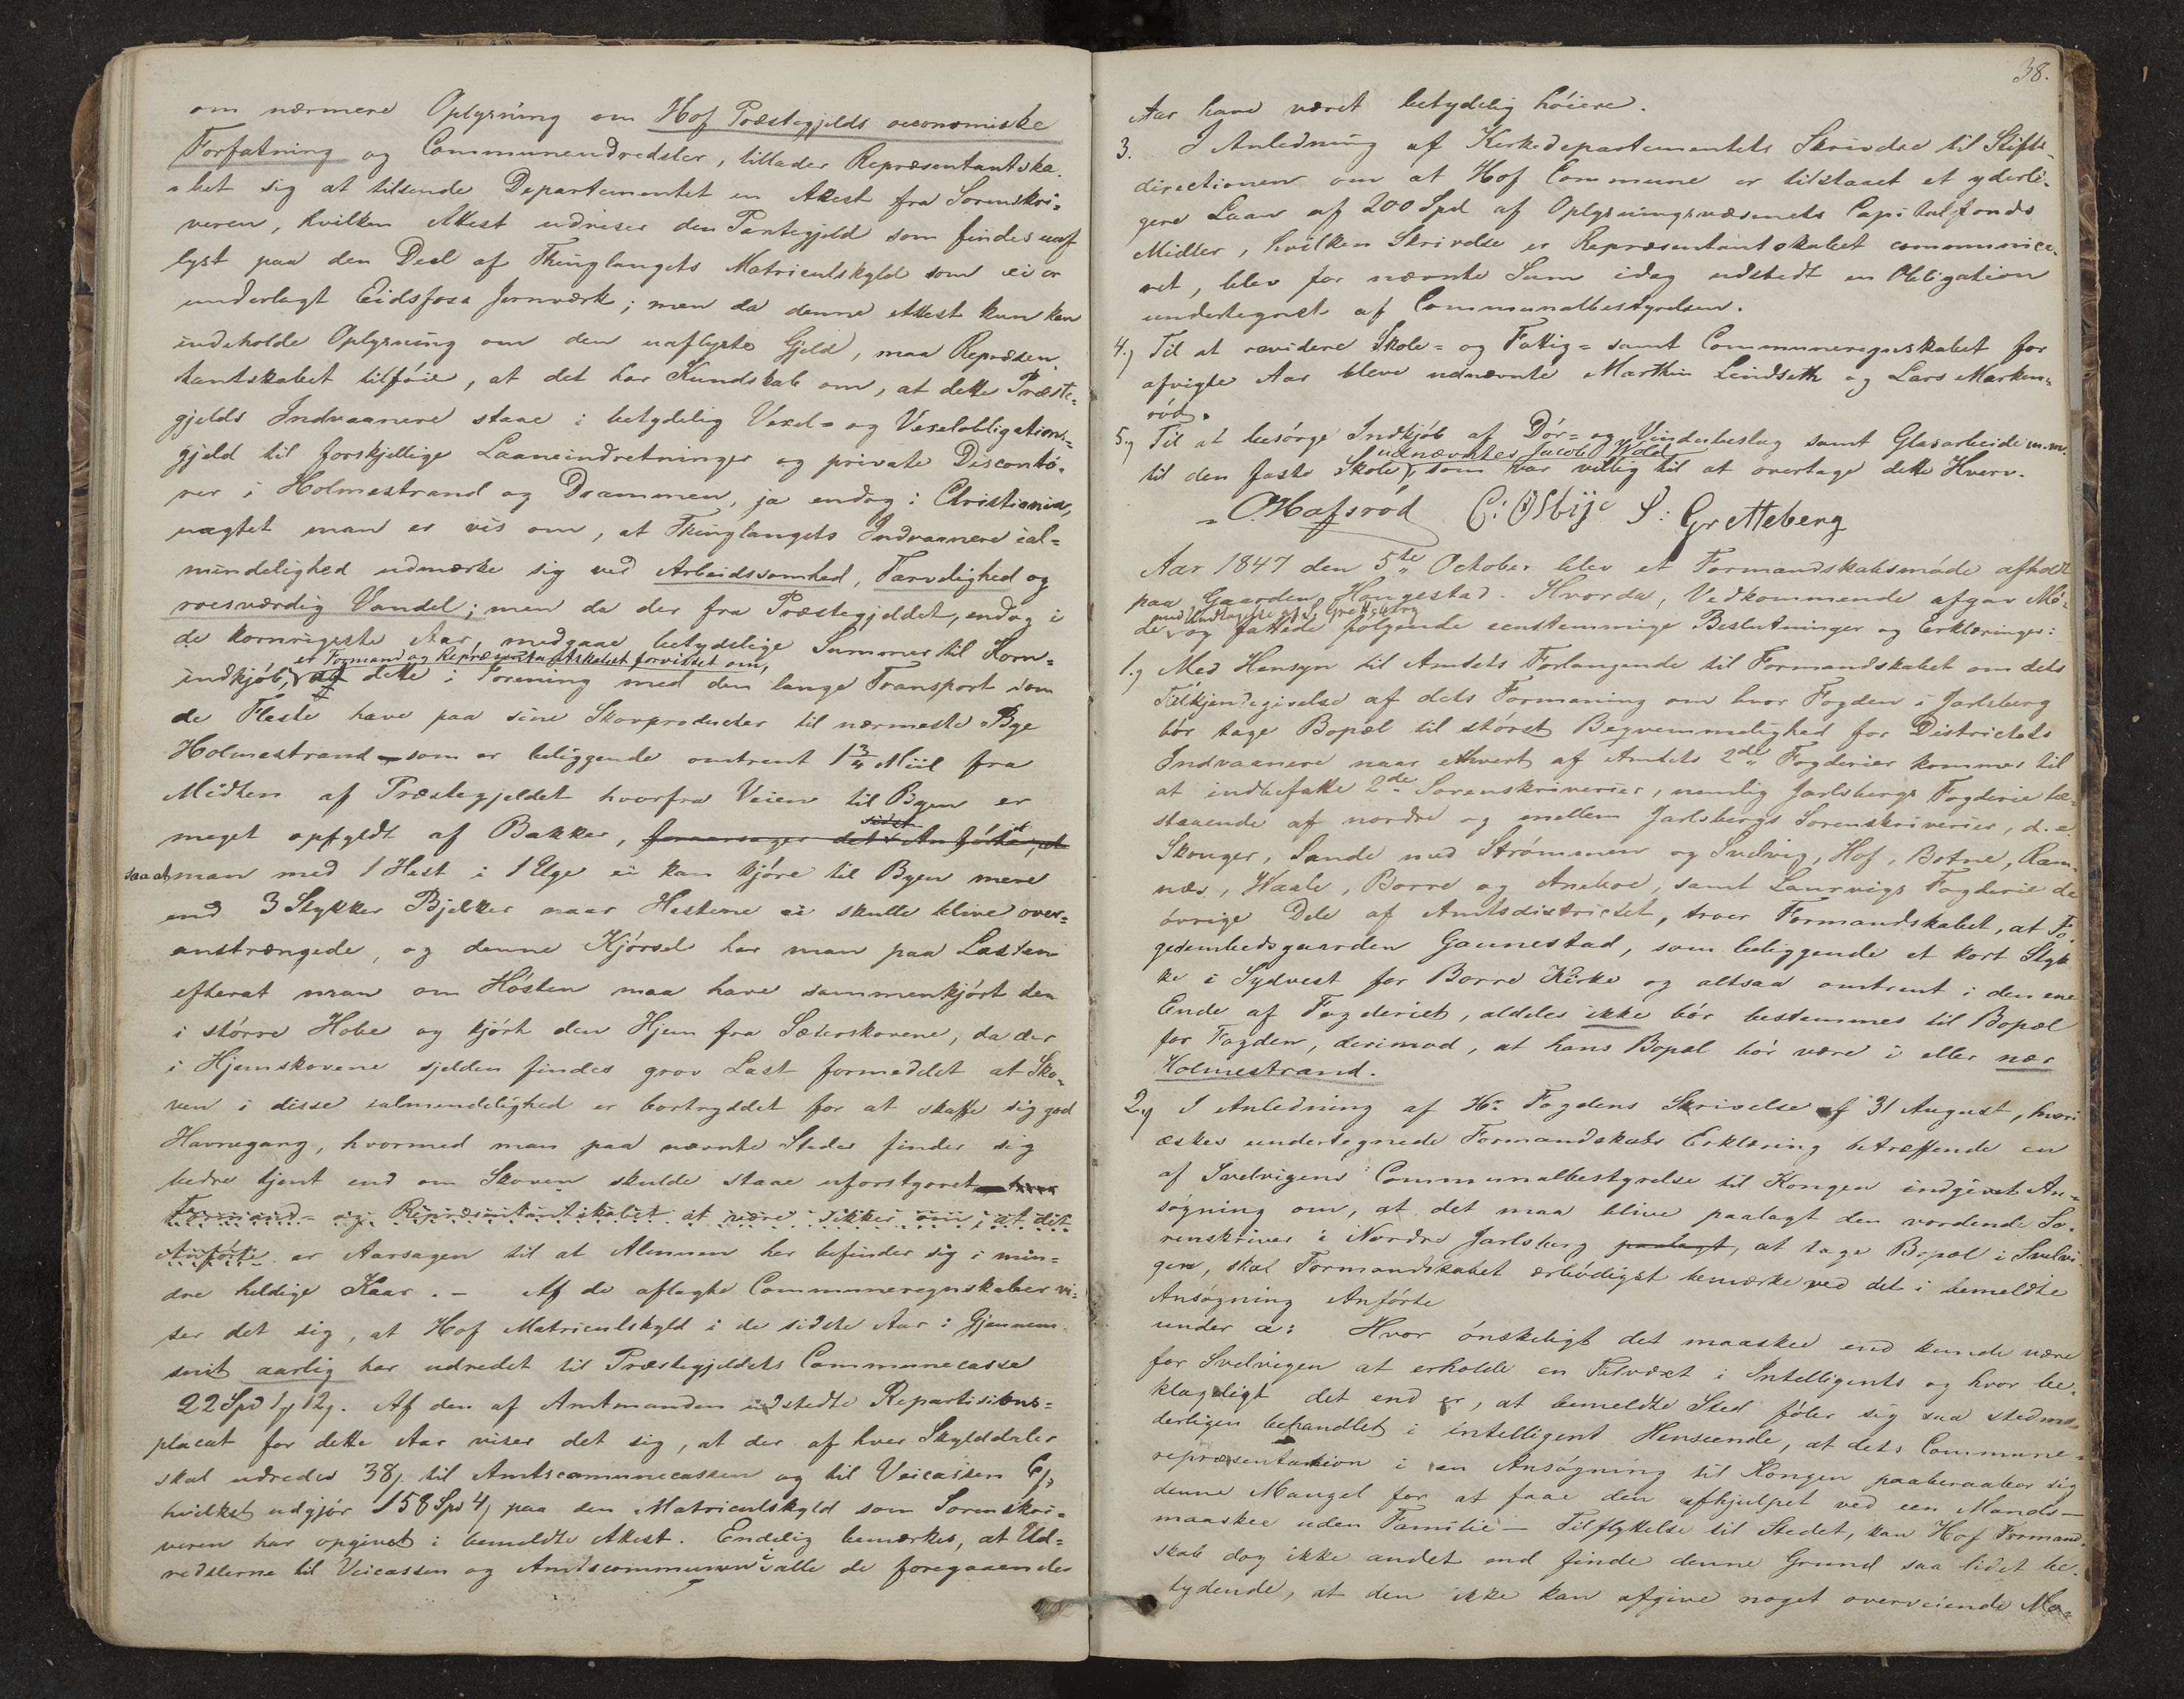 om nærmere Oplysning om Hof Præstegjelds oeconomiske
Forfatning og Communeudredsler, tillader Repræsentantska-
bet sig at tilsende Departementet en Attest fra Sorenskri=
veren, hvilken Attest udviser den Pantegjeld som findes uaf
lyst paa den Deel af Thinglaugets Matriculskyld som ei er
underlagt Eidsfoss Jernværk; men da denne Attest kun kan
indeholde Oplysning om den uaflyste Gjeld, maa Repræsen
tantskabet tilföie, at det har Kundskab om, at dette Præste=
gjelds Indvaanere staae i betydelig Vexel- og Vexelobligations=
gjeld til forskjellige Laaneindretninger og private Discontö-
rer i Holmestrand og Drammen, ja endog i Christiania,
uagtet man er vis om, at Thinglaugets Indvaanere ial=
mindelighed udmærke sig ved Arbeidssomhed, Tarvelighed og
roesværdig Vandel; men da der fra Præstegjeldet, endog i
de kornrigeste Aar, medgaae betydelige Summer til Korn=
er Formand og Repræsentantskabet forvisset om,
indkjöb, at dette i Forening med den lange Transport som
de Fleste have paa sine Skovproducter til nærmeste Bye
Holmestrand som er beliggende omtrent 1 3/4 Miil fra
Midten af Præstegjeldet hvorfra Veien til Byen er
meget opfyldt af Bakker, foraarsager det Anförte, at
saa at man med 1 Hest i 1 Uge ei kan kjöre til Byen mere
end 3 Stykker Bjelker naar Hestene ei skulle blive over=
anstrængede, og denne Kjörsel har man paa Lasten
efterat man om Hösten maa have sammenkjört den
i större Hobe og kjört den Hjem fra Sæterskovene, da der
i Hjemskovene sjelden findes grov Last formeddelst at Sko=
ven i disse ialmendelighed er bortryddet for at skaffe sig god
Havnegang, hvormed man paa nævnte Steder finder sig
bedre tjent end om Skoven skulde staae uforstyrret
Formand- og Repræsentantskabet at være sikker om, at det
Anförte er Aarsagen til at Almuen her befinder sig i min=
dre heldige Kaar. – Af de aflagte Communeregnskaber vi=
ser det sig, at Hof Matriculskyld i de sidste Aar i Gjennem-
snit aarlig har udredet til Præstegjeldets Communecasse
22 Spd 1 12. Af den af Amtmanden udstedte Repartisions=
placat for dette Aar viser det sig, at der af hver Skylddaler
skal udredes 38 til Amtscommunecassen og til Veicassen 6,
hvilket udgjör 158 Spd 4 paa den Matriculskyld som Sorenskri=
veren har opgivet i bemeldte Attest. Endelig bemærkes, at Ud=
redslerne til Veicassen og Amtscommunen i alle de foregaaende
38.
Aar have været betydelig höiere.
3. I Anledning af Kirkedepartementets Skrivelse til Stifts-
directionen om at Hof Commune er tilstaaet et yderli-
gere Laan af 200 Spd af Oplysningsvæsenets Capitalfonds
Midler, hvilken Skrivelse er Repræsentantskabet communice-
ret, blev for nævnte Sum idag udstedt en Obligation
undertegnet af Communalbestyrelsen.
4.) Til at revidere Skole= og Fattig= samt Communeregnskabet for
afvigte Aar bleve udnævnte Marthin Lindseth og Lars Marken=
röd.
5.) Til at besörge Indkjöb af Dör= og Vindubeslag samt Glasarbeide m.m.
udnævntes Jacob Wold
til den faste Skole, som var villig til at overtage dette Hverv.
O. Hafsröd C: Olsbye S: Gretteberg
Aar 1847 den 5te October blev et Formandskabsmöde afholdt
paa Gaarden Haugestad. Hvorda, Vedkommende afgav Mö-
med Undtagelse af S. Gretteberg
de og fattede fölgende eenstemmige Beslutninger og Erklæringer:
1.) Med Hensyn til Amtets Forlangende til Formandskabet om dets
Tilkjendegivelse af dets Formening om hvor Fogden i Jarlsberg
bör tage Bopæl til störst Beqvemmelighed for Districtets
Indvaanere naar ethvert af Amtets 2de Fogderier kommer til
at indbefatte 2de Sorenskriverier, nemlig Jarlsbergs Fogderie be-
staaende af nordre og mellem Jarlsbergs Sorenskriverier, d.e.
Skouger, Sande med Strömmen og Svelvig, Hof, Botne, Ram-
næs, Waale, Borre og Aneboe, samt Laurvigs Fogderie de
övrige Dele af Amtsdistrictet, troer Formandskabet, at Fo-
gedembedsgaarden Gaunestad, som beliggende et kort Styk
ke i Sydvest for Borre Kirke og altsaa omtrent i den ene
Ende af Fogderiet, aldeles ikke bör bestemmes til Bopæl
for Fogden, derimod, at hans Bopæl bör være i eller nær
Holmestrand.
2.) I Anledning af Hr. Fogdens Skrivelse af 31 August, hvori
æskes undertegnede Formandskabs Erklæring betræffende en
af Svelvigens Communalbestyrelse til Kongen indgivet An=
sögning om, at det maa blive paalagt den vordende So-
renskriver i Nordre Jarlsberg paalagt, at tage Bopæl i Svelvi
gen, skal Formandskabet ærbödigst bemærke ved det i bemeldte
Ansögning Anförte
under a: Hvor önskeligt det maaskee end kunde være
for Svelvigen at erholde en Tilvæxt i Intelligents og hvor be-
klageligt det end er, at bemeldte Sted föler sig saa stedmo-
derligen behandlet i intelligent Henseende, at dets Commune=
repræsentation i en Ansögning til Kongen paaberaaber sig
denne Mangel for at faae den afhjulpet ved een Mands –
maaskee uden Familie – Tilflyttelse til Stedet, kan Hof Formand-
skab dog ikke andet end finde denne Grund saa lidet be-
tydende, at den ikke kan afgive noget overveiende Mo=